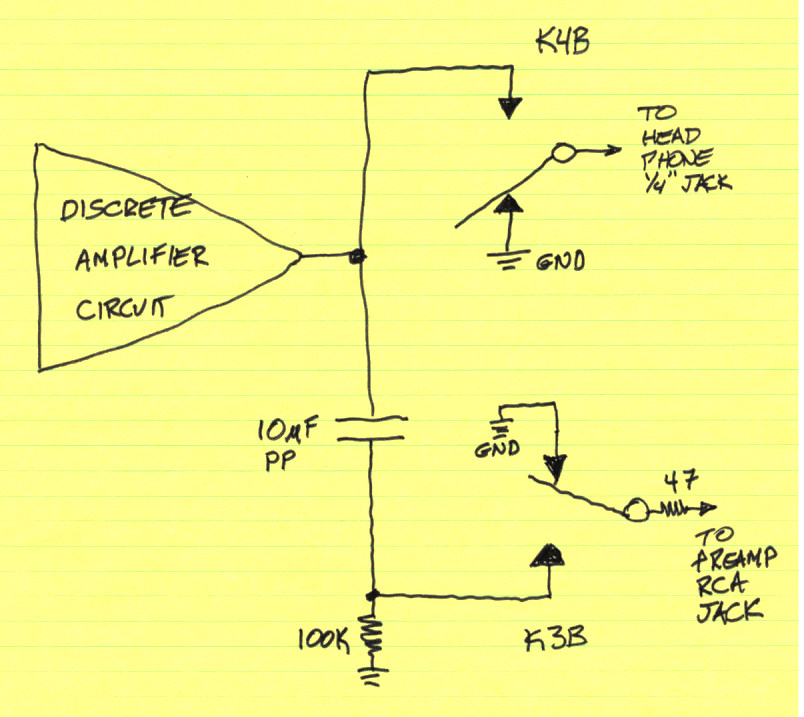 K4B
TO
HEAD
PHONE
1/4" JACK
DISCRETE
AMPLIFIER
CIRCUIT
GND
10µF
PP
GND
47
TO
PREAMP
RCA
JACK
100K
K3B